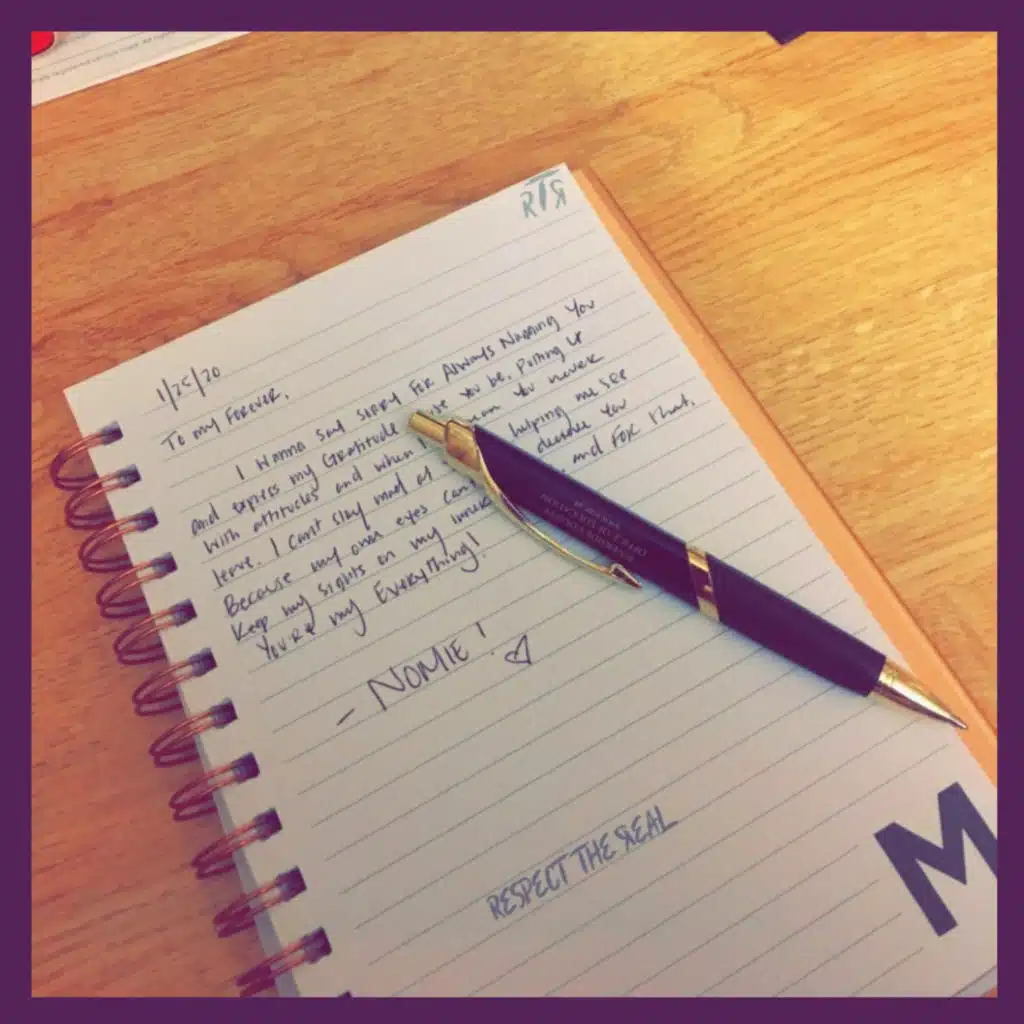 RTR
1/25/20
To my Forever,
I wanna say sorry For Always Nagging You
and express my Gratitude you be. Putting up
with attitudes and when I mean you never
leave. I cant stay mad at helping me see
Because my own eyes can deserve you
Keep my sights on my and For that.
You're my Everything!
- NOMIE!
RESPECT THE REAL
M